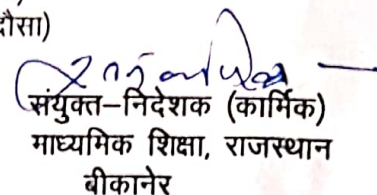 दौसा)
संयुक्त–निदेशक (कार्मिक)
माध्यमिक शिक्षा, राजस्थान
बीकानेर